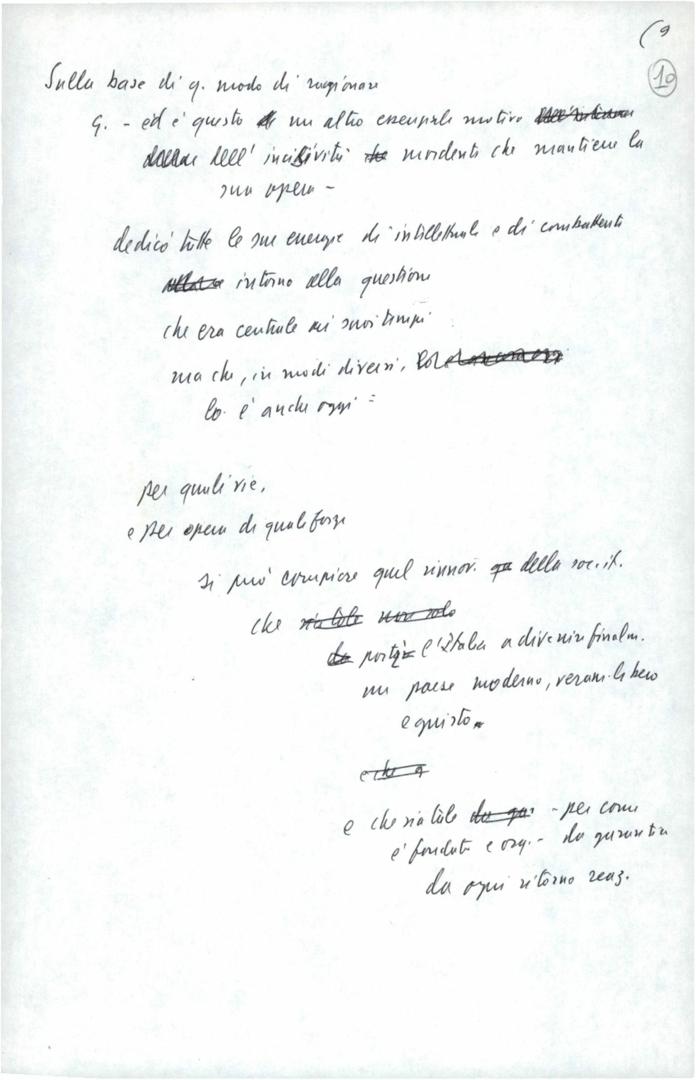 (9
10
Sulla base di q. modo di ragionare
G. - ed è questo un altro essenziale motivo
dell' incisività mordente che mantiene la
sua opera -
dedicò tutte le sue energie di intellettuale e di combattente
intorno alla questione
che era centrale ai suoi tempi
ma che, in modi diversi,
lo è anche oggi =
per quali vie,
e per opera di quali forze
si può compiere quel rinnov. della soc. it.
che
porti l'Italia a divenire finalm.
un paese moderno, veram. libero
e giusto
e che sia tale - per come
è fondata e org. - da garantire
da ogni ritorno reaz.